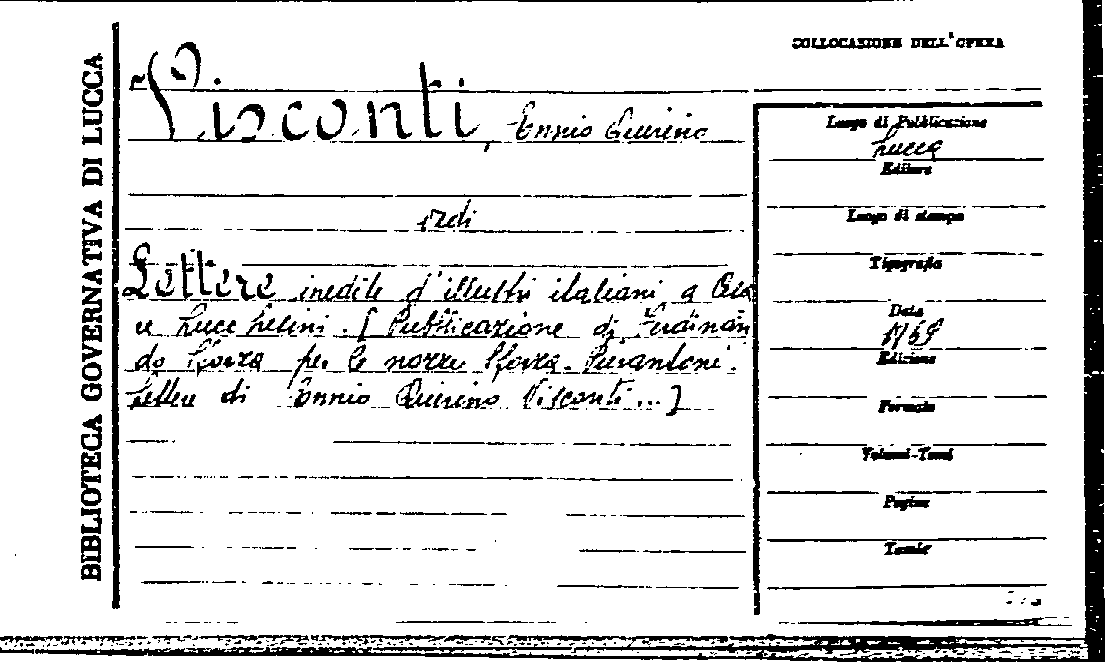 BIBLIOTECA GOVERNATIVA DI LUCCA
COLLOCAZIONE DELL'OPERA
Visconti, Ennio Quirino
vedi
Lettere inedite d'illustri italiani a
e Lucchesini. [Pubblicazione di Ferdinan
do Sforza per le nozze Sforza-Pierantoni.
Lettere di Ennio Quirino Visconti...]
Luogo di Pubblicazione
Lucca
Editore
Luogo di stampa
Tipografia
Data
1869
Edizione
Formato
Volumi-Tomi
Pagine
Tavole